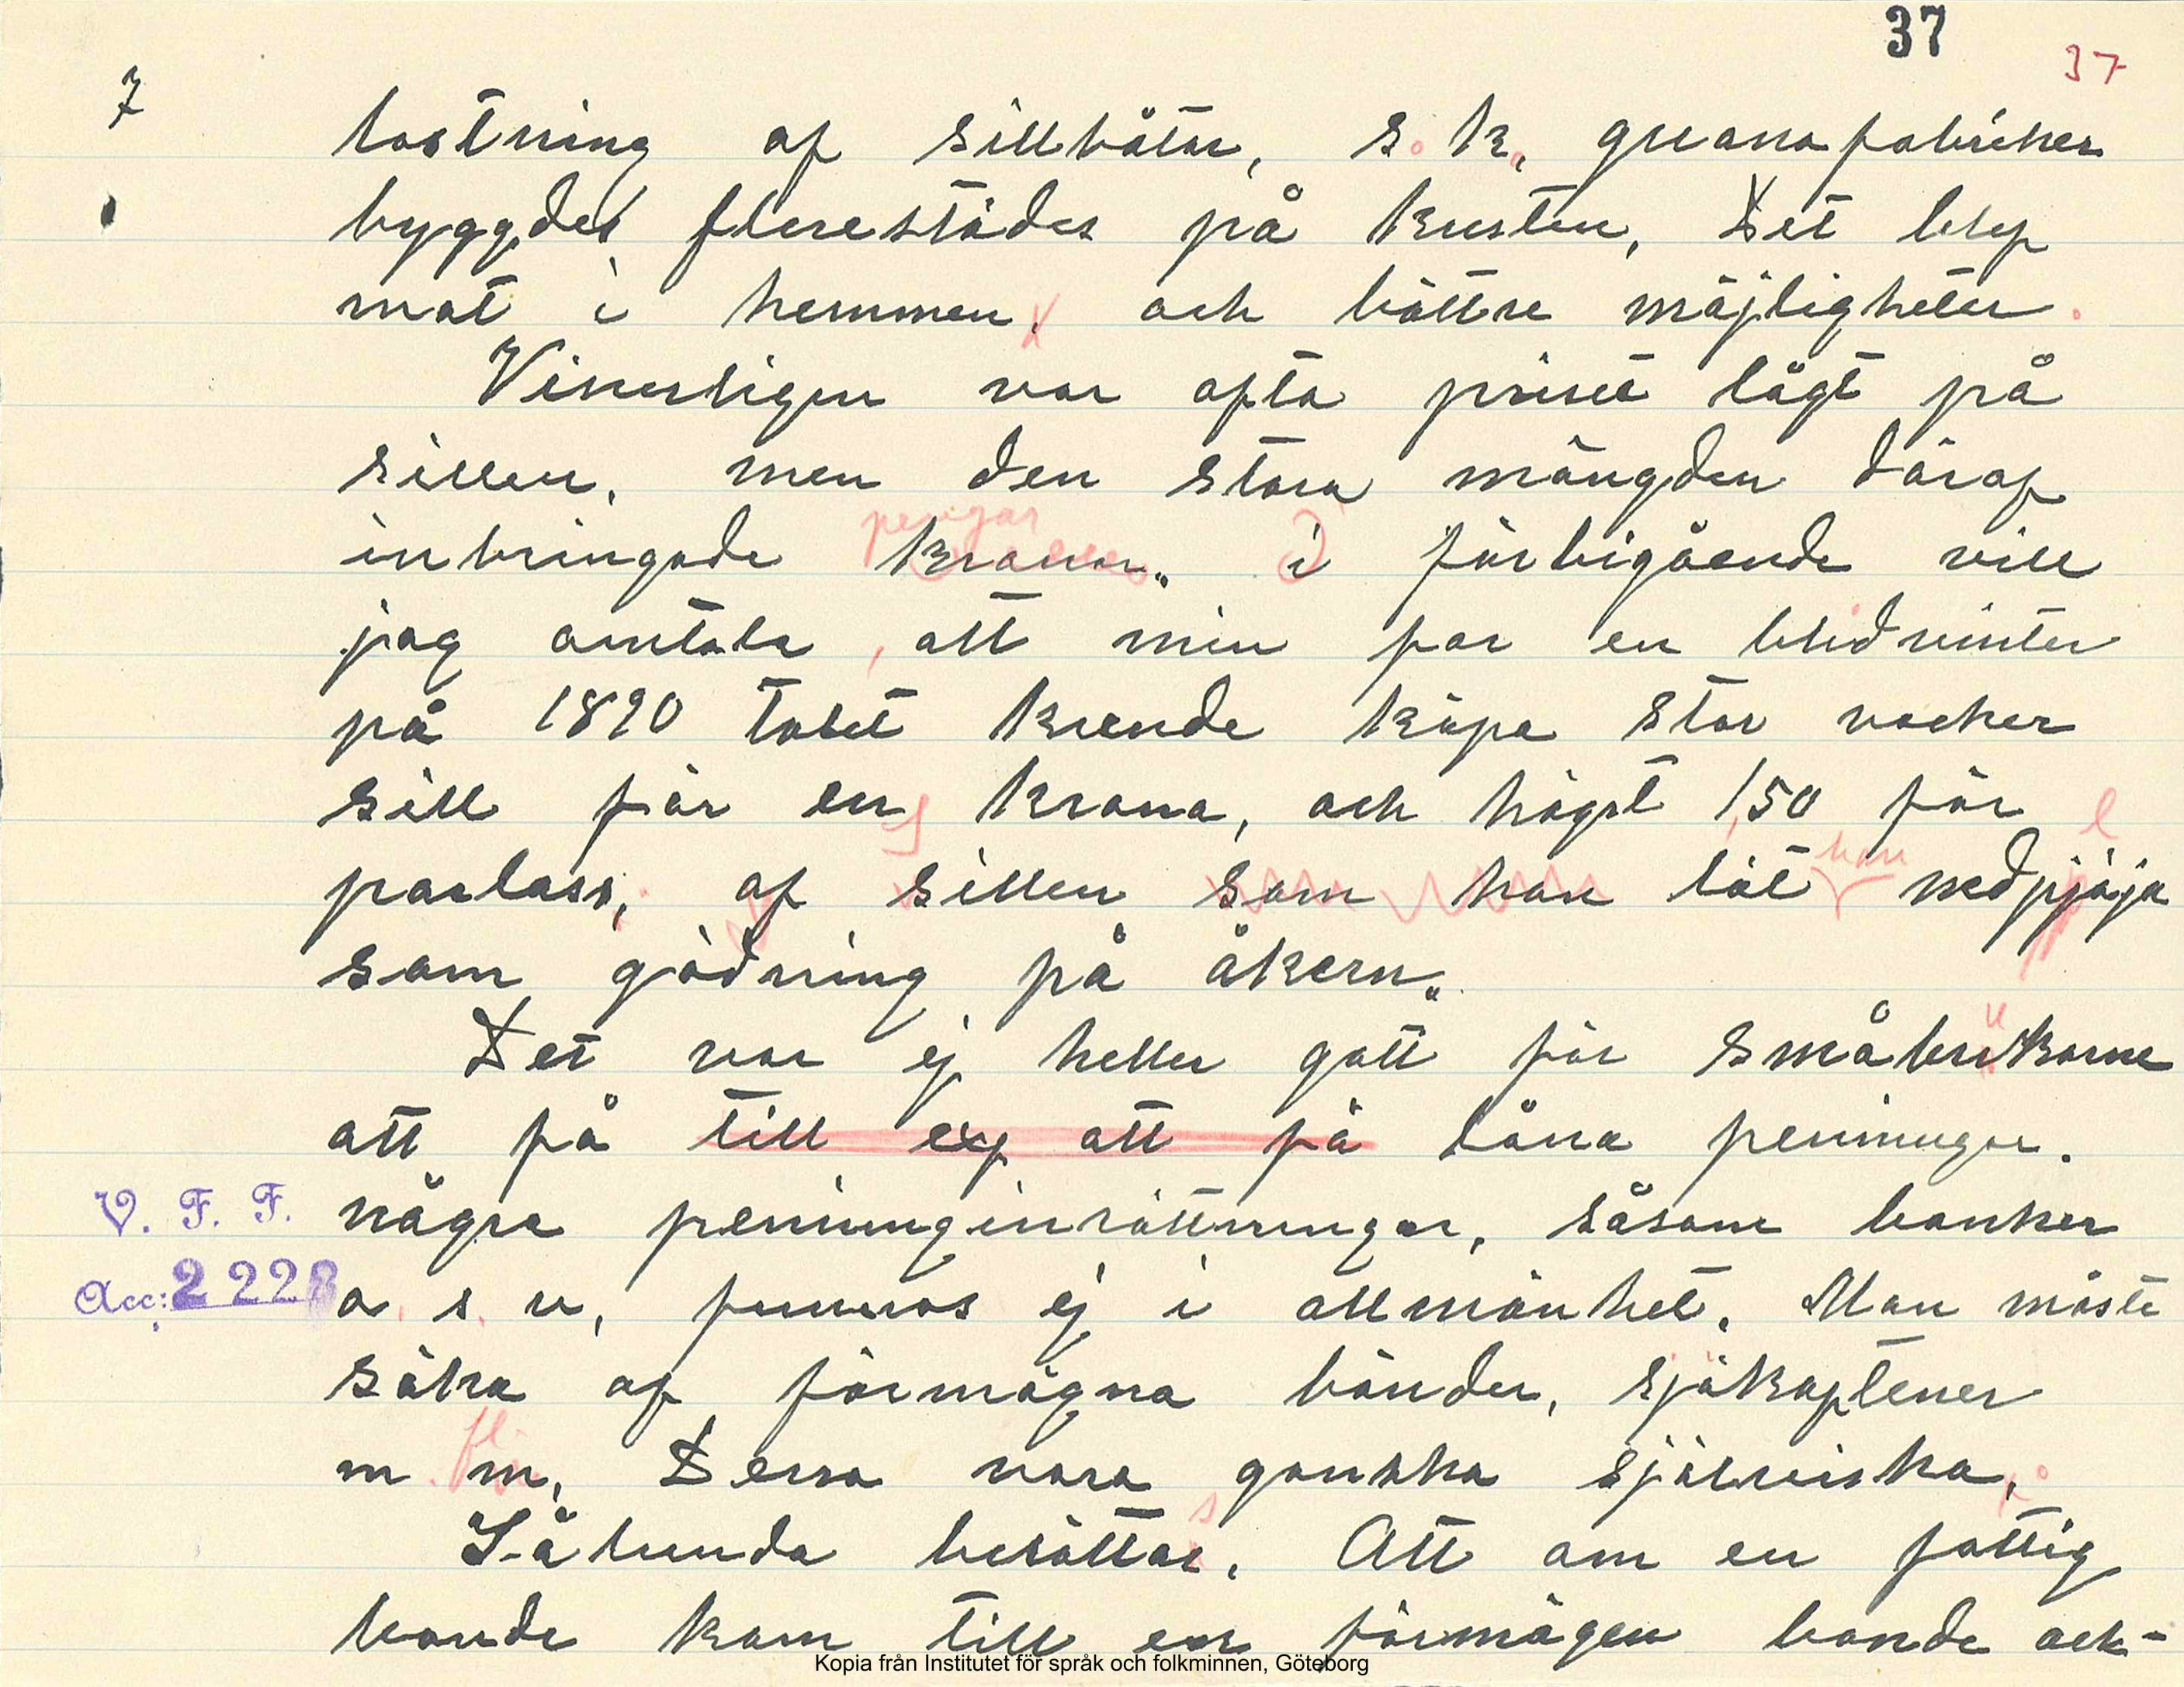 37
37
7
lastning af sillbåtar, s. k. guanofabriker
byggdes flerestädes på kusten, Det blef
mat i hemmen, och bättre möjligheter.
Visserligen var ofta priset lågt på
sillen, men den stora mängden däraf
pengar
inbringade kronor. i förbigående vill
jag omtala, att min far en blidvinter
på 1890 talet kunde köpa stor vacker
sill för en krona, och högst 1,50 för
l
han
parlass, af sillen som han lät nedpjöja
som gödning på åkern.
u
Det var ej heller gott för småbrukarne
att få till exp att få låna penningar.
V. F. F. några penninginrättningar, såsom banker
Acc: 2228 o. s. v, funnos ej i allmänhet. Man måste
söka af förmögna bönder, sjökaptener
fl.
m. m, Dessa vara ganska själviska,
s
Sålunda berättas, Att om en fattig
bonde kom till en förmögen bonde och-
Kopia från Institutet för språk och folkminnen, Göteborg